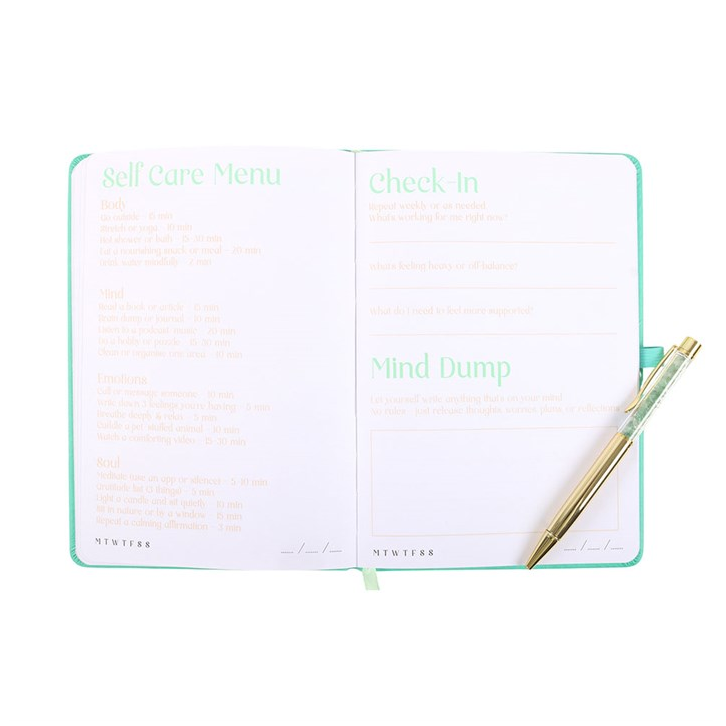 Self Care Menu
Body
Go outside - 15 min
Stretch or yoga - 10 min
Hot shower or bath - 15-30 min
Eat a nourishing snack or meal - 20 min
Drink water mindfully - 2 min
Mind
Read a book or article - 15 min
Brain dump or journal - 10 min
Listen to a podcast/music - 20 min
Do a hobby or puzzle - 15-30 min
Clean or organise one area - 10 min
Emotions
Call or message someone - 10 min
Write down 3 feelings you're having - 5 min
Breathe deeply & relax - 5 min
Cuddle a pet/stuffed animal - 10 min
Watch a comforting video - 15-30 min
Soul
Meditate (use an app or silence) - 5-10 min
Gratitude list (3 things) - 5 min
Light a candle and sit quietly - 10 min
Sit in nature or by a window - 15 min
Repeat a calming affirmation - 3 min
M T W T F S S __/__/__
Check-In
Repeat weekly or as needed
What's working for me right now?
What's feeling heavy or off-balance?
What do I need to feel more supported?
Mind Dump
Let yourself write anything that's on your mind
No rules - just release thoughts, worries, plans, or reflections
M T W T F S S __/__/__